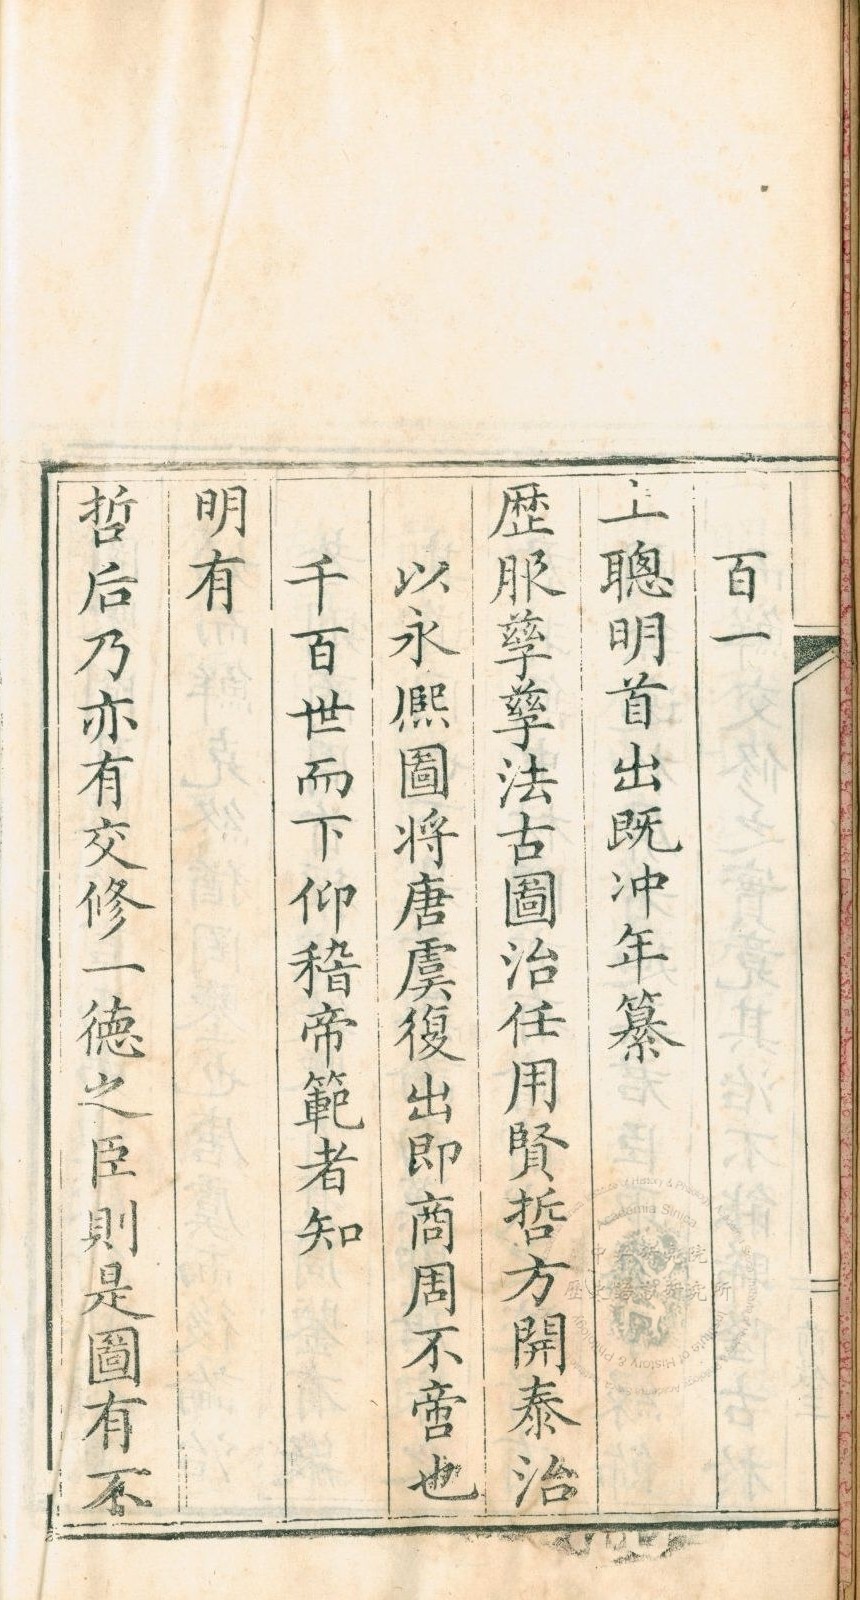 百一
上聰明首出既冲年纂
歷服孳孳法古圖治任用賢哲方開泰治
以永熈圖將唐虞復出即商周不啻也
千百世而下仰稽帝範者知
明有
哲后乃亦有交修一德之臣則是圖有不
中央研究院
歷史語言研究所
Academia Sinica
Institute of History & Philology